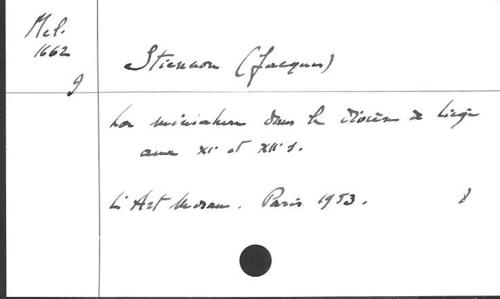 Mel.
1662
9
Stiennon (Jacques)
La miniature dans le diocèse de Liège
aux XIe et XIIe s.
L'Art Mosan. Paris 1953. 8